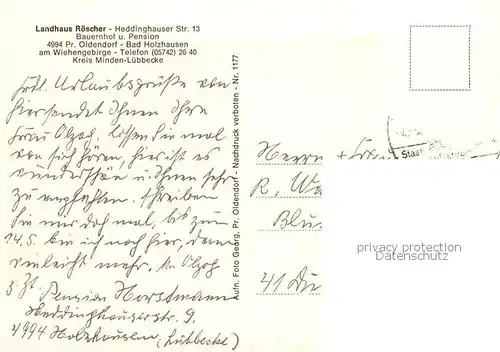 Landhaus Röscher - Heddinghauser Str. 13
Bauernhof u. Pension
4994 Pr. Oldendorf - Bad Holzhausen
am Wiehengebirge - Telefon (05742) 26 40
Kreis Minden-Lübbecke
Frdl. Urlaubsgrüße von
hier sendet Ihnen Ihre
Frau lassen Sie mal
von sich hören, hier ist es
wunderschön u. Ihnen sehr
zu empfehlen. Schreiben
Sie mir doch mal, bis zum
14.5. bin ich noch hier, dann
vielleicht mehr.
z. Zt. Pension Horstmann
Heddinghauserstr. 9,
4994 Holzhausen, (Lübbecke)
Aufn. Foto Georg, Pr. Oldendorf - Nachdruck verboten - Nr. 1177
Herrn + Frau
R. Wa
Blu
41 Du
Staat
privacy protection
watermark